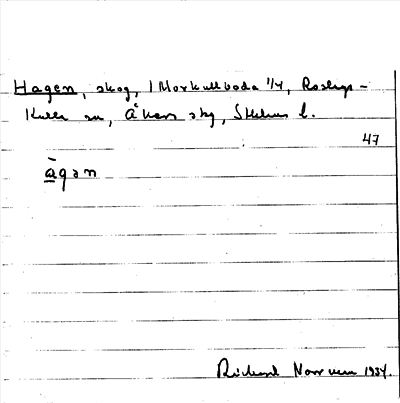 Hagen, skog, 1 Morkullboda 1/4, Roslags-
Kulla sn, Åkers skg, Sthlms l.
47
àgən
Rickard Norrman 1934.